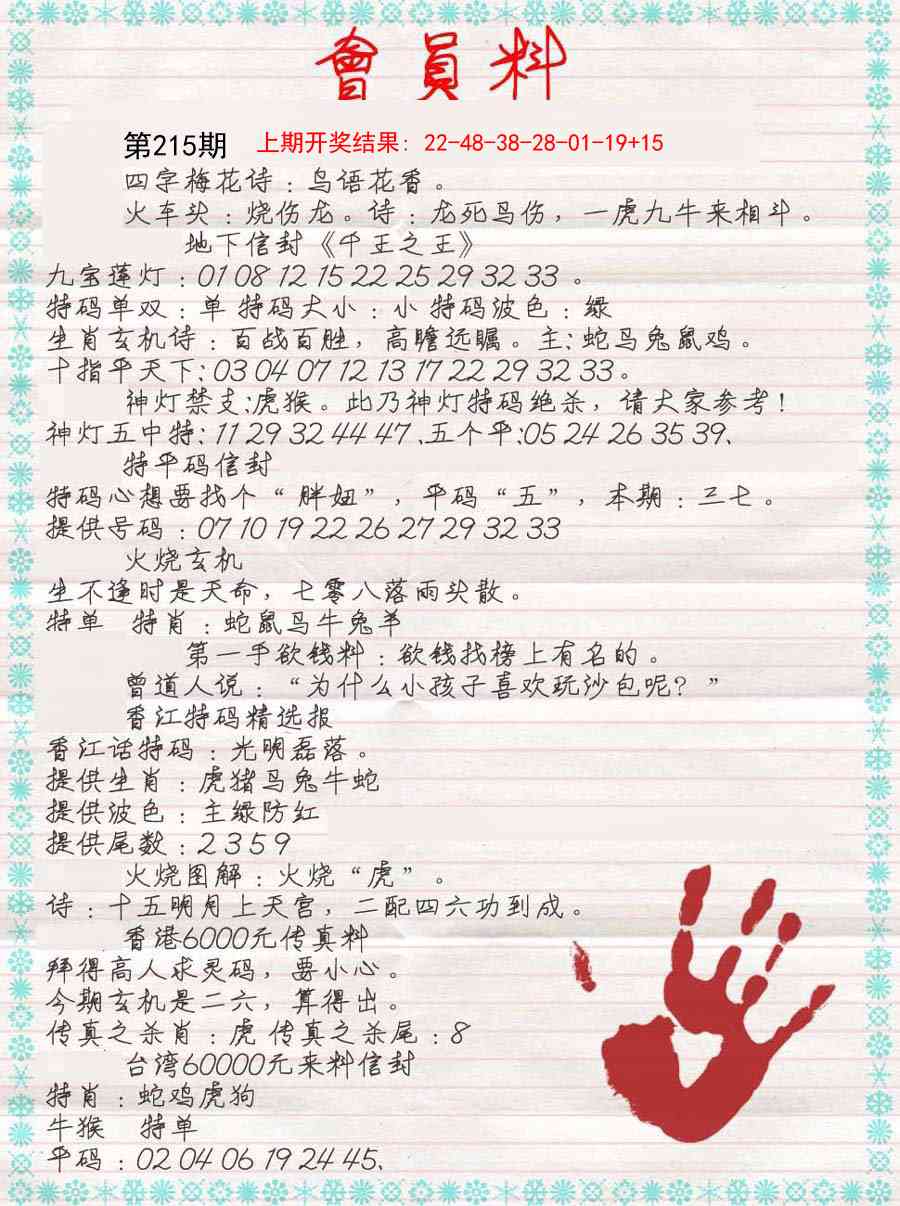 會員料
第215期 上期开奖结果：22-48-38-28-01-19+15
四字梅花诗：鸟语花香。
火车头：烧伤龙。诗：龙死鸟伤，一虎九牛来相斗。
地下信封《千王之王》
九宝莲灯：01 08 12 15 22 25 29 32 33 。
特码单双：单 特码大小：小 特码波色：绿
生肖玄机诗：百战百胜，高瞻远瞩。主:蛇马兔鼠鸡。
十指平天下:03 04 07 12 13 17 22 29 32 33。
神灯禁支:虎猴。此乃神灯特码绝杀，请大家参考！
神灯五中特: 11 29 32 44 47 、五个平:05 24 26 35 39、
特平码信封
特码心想要找个“胖妞”，平码“五”，本期：三七。
提供号码：07 10 19 22 26 27 29 32 33
火烧玄机
生不逢时是天命，七零八落雨头散。
特单 特肖：蛇鼠马牛兔羊
第一手欲钱料：欲钱找榜上有名的。
曾道人说：“为什么小孩子喜欢玩沙包呢？”
香江特码精选报
香江话特码：光明磊落。
提供生肖：虎猪马兔牛蛇
提供波色：主绿防红
提供尾数：2 3 5 9
火烧图解：火烧“虎”。
诗：十五明月上天宫，二配四六功到成。
香港6000元传真料
拜得高人求灵码，要小心。
今期玄机是二六，算得出。
传真之杀肖：虎 传真之杀尾：8
台湾60000元来料信封
特肖：蛇鸡虎狗
牛猴 特单
平码：02 04 06 19 24 45、